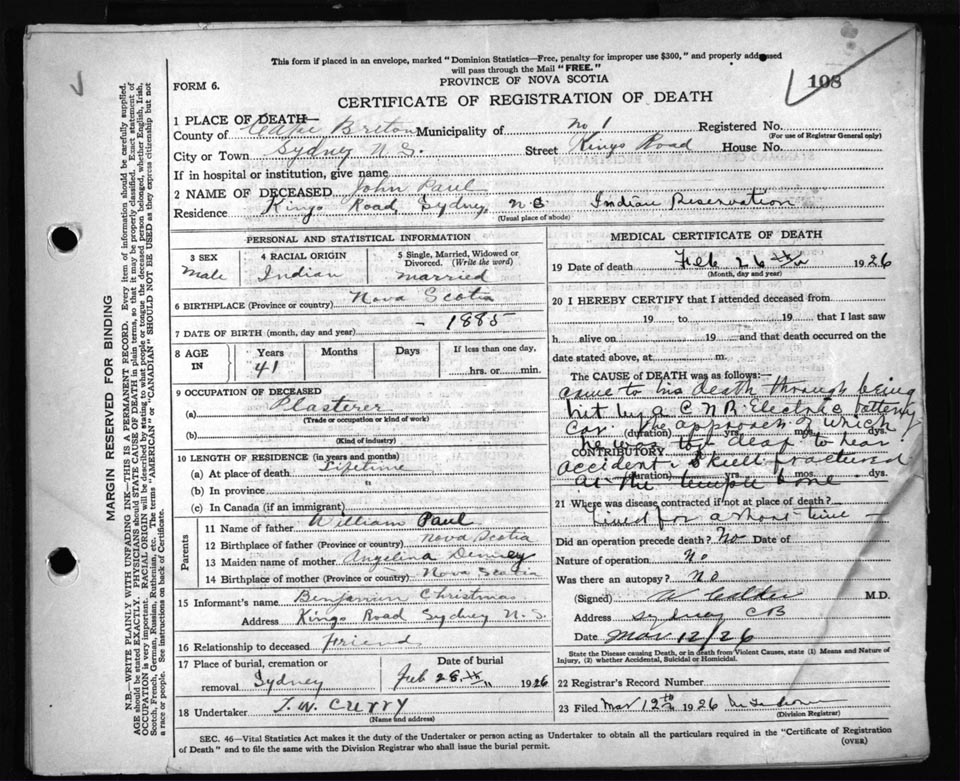 This form if placed in an envelope, marked "Dominion Statistics—Free, penalty for improper use $300," and properly addressed
will pass through the Mail "FREE."
108
PROVINCE OF NOVA SCOTIA
FORM 6.
CERTIFICATE OF REGISTRATION OF DEATH
1 PLACE OF DEATH—
County of Cape Breton Municipality of No 1 Registered No.
(For use of Registrar General only)
City or Town Sydney N.S. Street Kings Road House No.
If in hospital or institution, give name
2 NAME OF DECEASED John Paul
Residence Kings Road, Sydney, N S Indian Reservation
(Usual place of abode)
PERSONAL AND STATISTICAL INFORMATION
3 SEX 4 RACIAL ORIGIN 5 Single, Married, Widowed or
Divorced. (Write the word)
Male Indian married
6 BIRTHPLACE (Province or country) Nova Scotia
7 DATE OF BIRTH (month, day and year) – 1885
8 AGE IN Years Months Days If less than one day,
41 hrs. or min.
9 OCCUPATION OF DECEASED
(a) Plasterer
(Trade or occupation or kind of work)
(b)
(Kind of industry)
10 LENGTH OF RESIDENCE (in years and months)
(a) At place of death Lifetime
(b) In province "
(c) In Canada (if an immigrant)
Parents
11 Name of father William Paul
12 Birthplace of father (Province or country) Nova Scotia
13 Maiden name of mother Angelina Denney
14 Birthplace of mother (Province or country) Nova Scotia
15 Informant's name Benjamin Christmas
Address Kings Road Sydney N.S.
16 Relationship to deceased friend
17 Place of burial, cremation or Date of burial
removal Sydney Feb 28th 1926
18 Undertaker T. W. Curry
(Name and address)
MEDICAL CERTIFICATE OF DEATH
19 Date of death Feb 26th 1926
(Month, day and year)
20 I HEREBY CERTIFY that I attended deceased from
19 to 19 that I last saw
h alive on 19 and that death occurred on the
date stated above, at m.
The CAUSE OF DEATH was as follows:
came to his death through being
hit by a C N R Electric battery
car. The approach of which
(duration) yrs. mos. dys.
he was too deaf to hear
CONTRIBUTORY
accident: Skull fractured
(duration) yrs. mos. dys.
at the temple bone
21 Where was disease contracted if not at place of death?
lived for a short time –
Did an operation precede death? No Date of
Nature of operation No
Was there an autopsy? No
(Signed) W Calder M.D.
Address Sydney CB
Date Mar 12/26
State the Disease causing Death, or in death from Violent Causes, state (1) Means and Nature of
Injury, (2) whether Accidental, Suicidal or Homicidal.
22 Registrar's Record Number
23 Filed Mar 12th 1926
(Division Registrar)
SEC. 46—Vital Statistics Act makes it the duty of the Undertaker or person acting as Undertaker to obtain all the particulars required in the "Certificate of Registration
of Death" and to file the same with the Division Registrar who shall issue the burial permit.
(OVER)
MARGIN RESERVED FOR BINDING
N.B.—WRITE PLAINLY WITH UNFADING INK—THIS IS A PERMANENT RECORD. Every item of information should be carefully supplied.
AGE should be stated EXACTLY. PHYSICIANS should STATE CAUSE OF DEATH in plain terms, so that it may be properly classified. Exact statement of
OCCUPATION is very important. RACIAL ORIGIN will be described by stating to what people or tongue the deceased person belonged, whether English, Irish,
Scotch, French, German, Russian, Ruthenian, etc. The terms "AMERICAN" or "CANADIAN" SHOULD NOT BE USED as they express citizenship but not
a race or people. See instructions on back of Certificate.